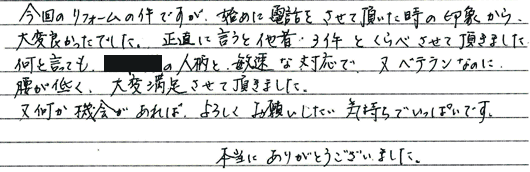 今回のリフォームの件ですが、始めに電話をさせて頂いた時の印象から
大変良かったでした。正直に言うと他者・3件とくらべさせて頂きました
何と言っても、の人柄と、敏速な対応で、又ベテランなのに
腰が低く、大変満足させて頂きました。
又何か機会があれば、よろしくお願いしたい気持ちでいっぱいです。
本当にありがとうございました。